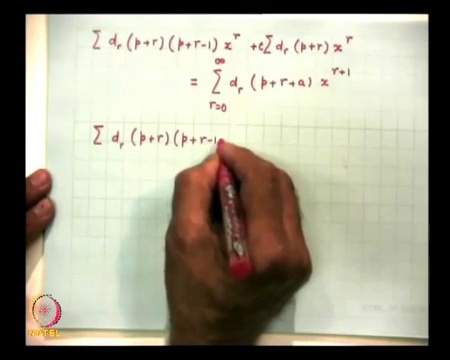 Σ d_r (p+r) (p+r-1) x^r + c Σ d_r (p+r) x^r
= Σ_{r=0}^{∞} d_r (p+r+a) x^{r+1}
Σ d_r (p+r) (p+r-1
NPTEL